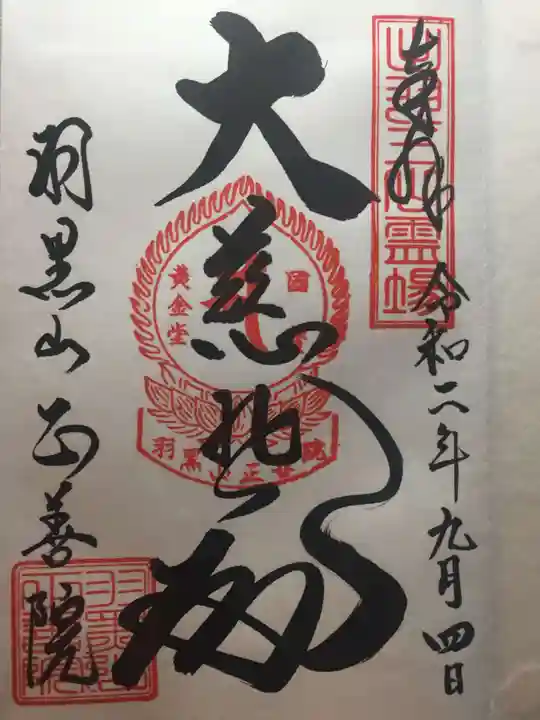 奉拝 令和二年九月四日
大慈悲殿
羽黒山 正善院
黄金堂
羽黒山正善院